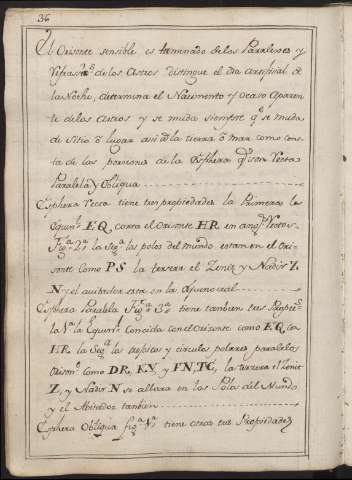 36
El Orisonte sensible es terminado de los Paralexes y
Refraxⁿᵉˢ de los Astros distingue el dia artifisial de
la Noche, determina el Nacimiento y Ocaso Aparen
te de los Astros y se muda siempre qᵉ se muda
de sitio ô lugar asi â la tierra ô mar como cons
ta de las posiciones de la Esphera qᵉ son Recta
Paralela y Obliqua
Esphera Recta tiene tres propiedades la Primera la
Equinˡ EQ, corta el Orisonte HR en angˢ Rectos
Figᵃ 2ᵃ la Segᵃ los polos del mundo estan en el Ori
sonte como PS la tersera el Zenit y Nadir Z
N y el avitador esta en la Equinoccial
Esphera Paralela Figᵃ 3ᵃ tiene tambien tres Propieˢ
la 1ᵃ la Equinˡ Concida con el Orisonte como EQ, con
HR la Segᵃ los tropicos y circulos polares paralelos
Orisonᵗ como DR, KY, y FN, TC, la tersera el Zenit
Z, y Nadir N se allara en los Polos del Mundo
y el Abitador tambien
Esphera Obliqua figᵃ 1ᵃ tiene otras tres Propiedades